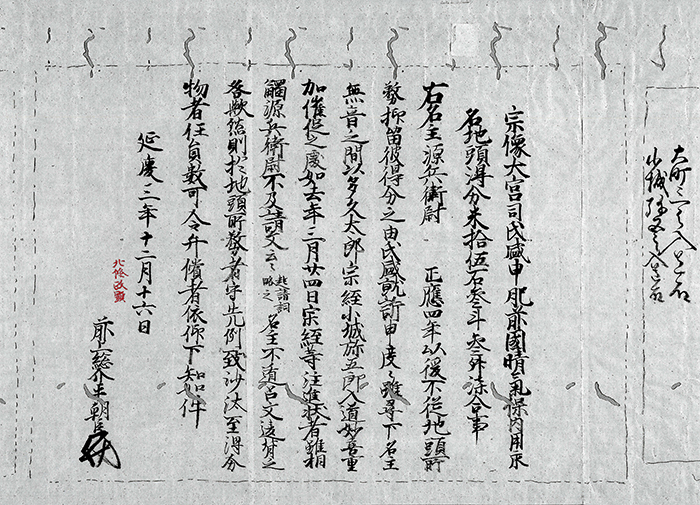 大町
小城
宗像大宮司氏盛申肥前國晴氣保内用尺
名地頭得分米拾伍石叁斗叁升餘合事
右名主源兵衛尉 正應四年以後不從地頭所
務抑留彼得分之由氏盛就訴申度々雖尋下名主
無音之間以多久太郎宗經小城弥五郎入道妙喜重
加催促之處如去年三月廿四日宗經等注進状者雖相
觸源兵衛尉不及請文云々起請詞略之名主不道召文違背之
咎歟然則於地頭所務者守先例可致沙汰至得分
物者任員數可令弁償者依仰下知如件
延慶三年十二月十六日
北條政顯
前上総介平朝臣